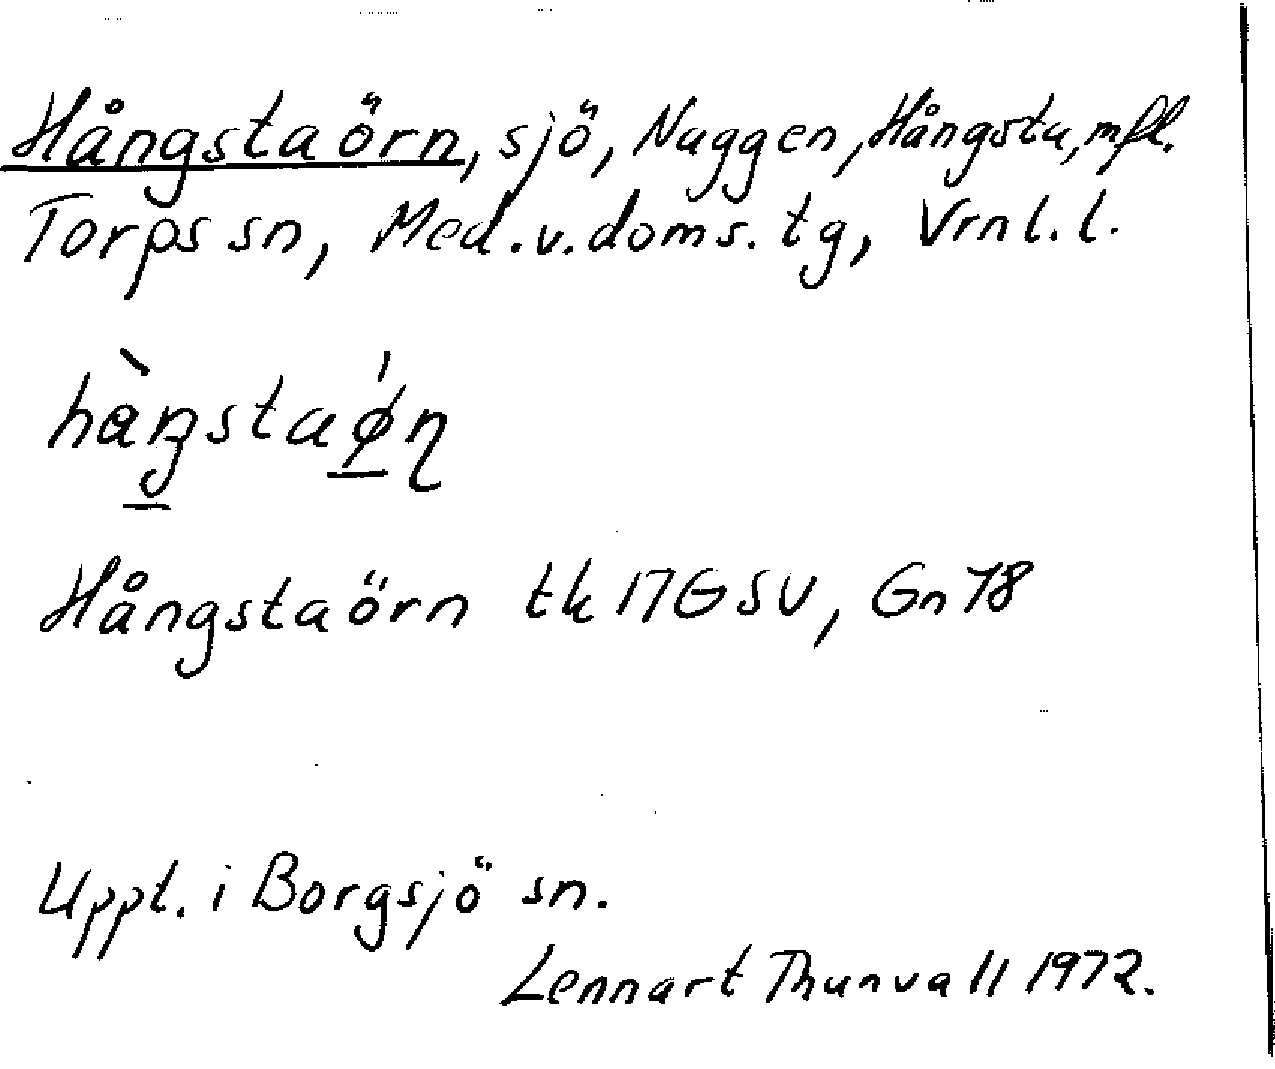 Hångstaörn, sjö, Naggen, Hångsta, mfl.
Torps sn, Med. v. doms. tg, Vrnl. l.
Hångstaörn tk 17G SV, Gn 18
Uppt. i Borgsjö sn.
Lennart Thunvall 1972.